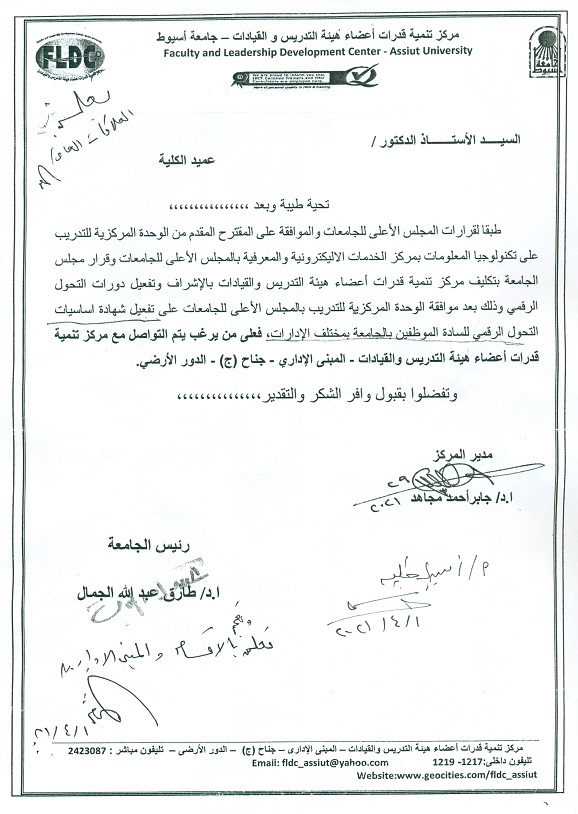 مركز تنمية قدرات أعضاء هيئة التدريس و القيادات – جامعة أسيوط
Faculty and Leadership Development Center - Assiut University
FLDC
We are proud to inform you that
IBCT Certified Trainers and
Consultants are employed here
Mark of personal quality in HRD & training
جامعة أسيوط
السيــــد الأستـــــاذ الدكتور /
عميد الكلية
تحية طيبة وبعد ,,,,,,,,,,,,,,,,
طبقا لقرارات المجلس الأعلى للجامعات والموافقة على المقترح المقدم من الوحدة المركزية للتدريب
على تكنولوجيا المعلومات بمركز الخدمات الاليكترونية والمعرفية بالمجلس الأعلى للجامعات وقرار مجلس
الجامعة بتكليف مركز تنمية قدرات أعضاء هيئة التدريس والقيادات بالإشراف وتفعيل دورات التحول
الرقمي وذلك بعد موافقة الوحدة المركزية للتدريب بالمجلس الأعلى للجامعات على تفعيل شهادة اساسيات
التحول الرقمي للسادة الموظفين بالجامعة بمختلف الإدارات، فعلى من يرغب يتم التواصل مع مركز تنمية
قدرات أعضاء هيئة التدريس والقيادات - المبنى الإداري - جناح (ج) - الدور الأرضي.
وتفضلوا بقبول وافر الشكر والتقدير,,,,,,,,,,,,,,,
مدير المركز
ا.د/ جابر أحمد مجاهد
٢٠٢١
رئيس الجامعة
ا.د/ طارق عبد الله الجمال
٢٠٢١/٤/١
٢١/٤/١
مركز تنمية قدرات أعضاء هيئة التدريس والقيادات – المبنى الإدارى – جناح (ج) – الدور الأرضى – تليفون مباشر : 2423087
تليفون داخلى:1217- 1219
Email: fldc_assiut@yahoo.com
Website:www.geocities.com/fldc_assiut